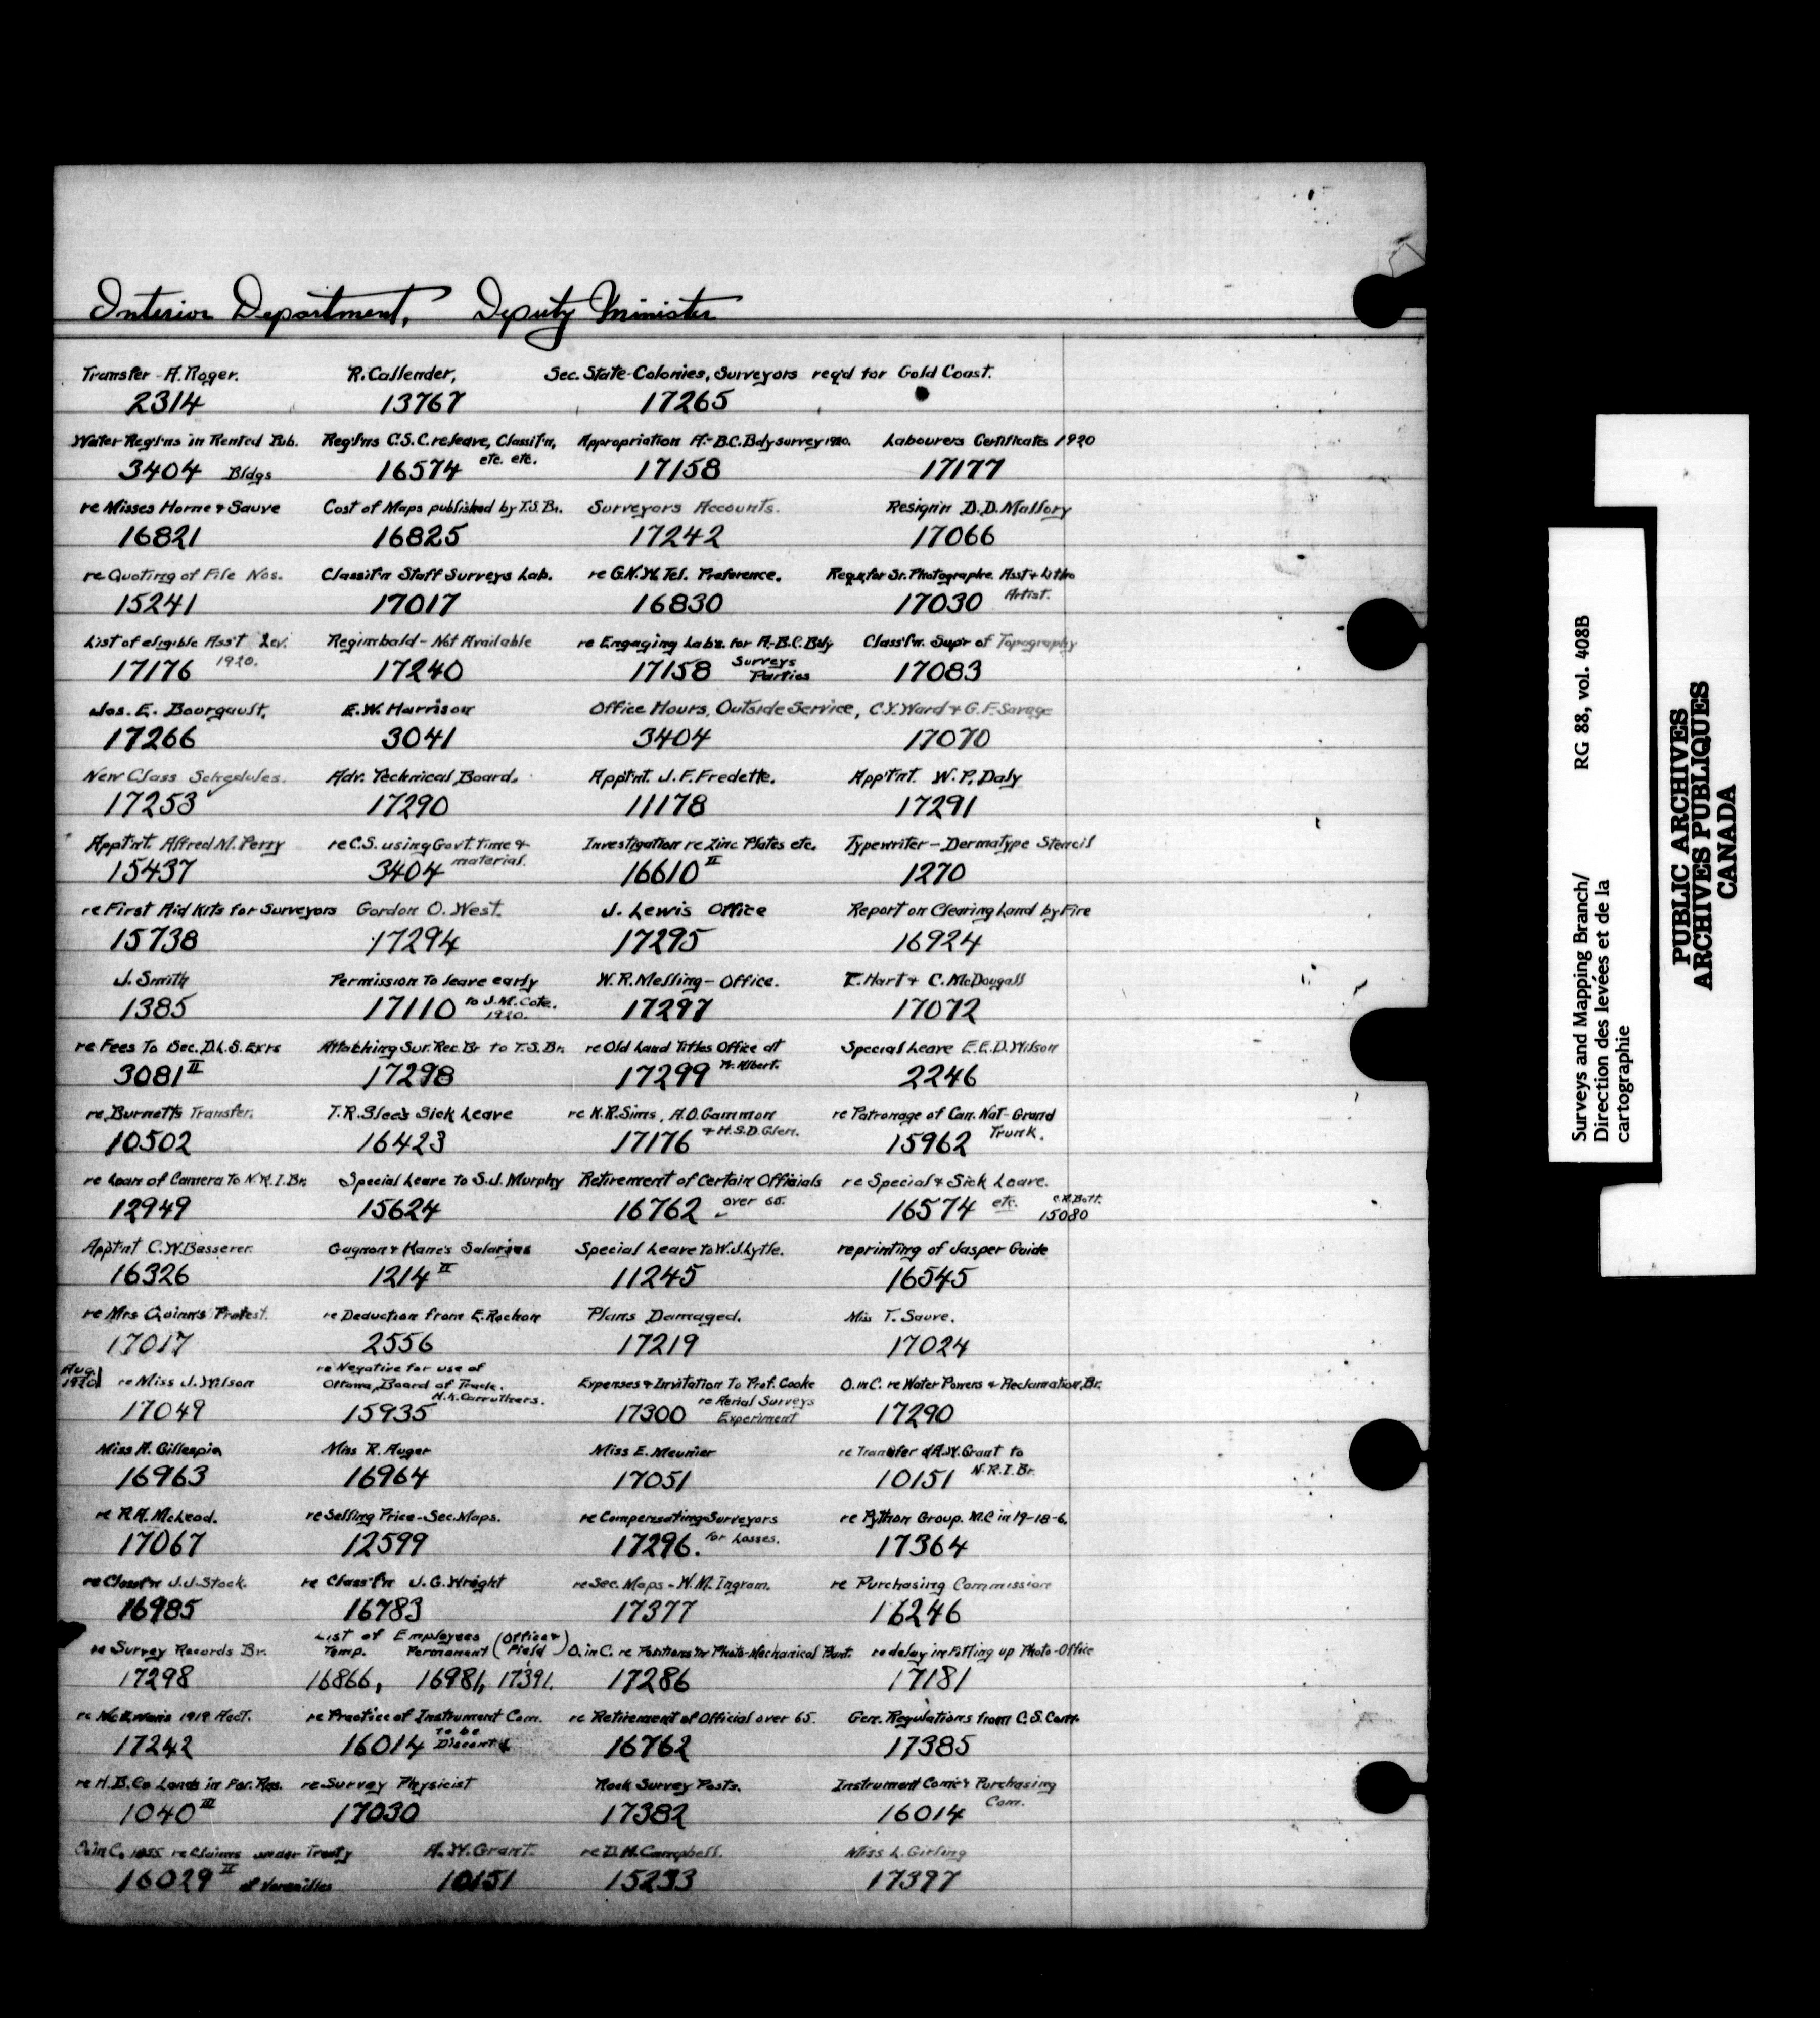 Interior Department, Deputy Minister
Transfer - A. Roger. R. Callender, Sec. State-Colonies, Surveyors req'd for Gold Coast.
2314 13767 17265
Water Reg'l'ns in Rented Pub. Reg'l'ns C.S.C. re leave, Classif'n, Appropriation A.-B.C. Bdy survey 1920. Labourers Certificates 1920
3404 Bldgs 16574 etc. etc. 17158 17177
re Misses Horne & Sauve Cost of Maps published by T.S. Br. Surveyors Accounts. Resign'n D.D. Mallory
16821 16825 17242 17066
re Quoting of File Nos. Classif'n Staff Surveys Lab. re G.N.W. Tel. Preference. Requ. for Sr. Photographe. Asst & Litho
15241 17017 16830 17030 Artist.
List of eligible Ass't Lev. Regimbald - Not Available re Engaging Lab's. for A.-B.C. Bdy Classf'n. Sup'r of Topography
17176 1920. 17240 17158 Surveys Parties 17083
Jos. E. Bourgault, E.W. Harrison Office Hours, Outside Service, C.Y. Ward & G.F. Savage
17266 3041 3404 17070
New Class Schedules. Adv. Technical Board. Appt'nt. J.F. Fredette. App't'nt. W.P. Daly
17253 17290 11178 17291
Appt'nt. Alfred M. Perry re C.S. using Govt. time & Investigation re Zinc Plates etc. Typewriter - Dermatype Stencil
15437 3404 material. 16610 II 1270
re First Aid Kits for Surveyors Gordon O. West. J. Lewis Office Report on Clearing Land by Fire
15738 17294 17295 16924
J. Smith Permission to leave early W.R. Messing - Office. E. Hart & C. McDougall
1385 17110 to J.M. Cote. 1920. 17297 17072
re Fees To Sec. D.L.S. Ex'rs Attaching Sur. Rec. Br to T.S. Br. re Old Land Titles Office at Special Leave E.E.D. Wilson
3081 II 17298 17299 Pr. Albert. 2246
re Burnett's Transfer. T.R. Slee's Sick Leave re H.R. Sims, A.O. Gammon re Patronage of Can. Nat-Grand
10502 16423 17176 & H.S.D. Glen. 15962 Trunk.
re Loan of Camera To N.R.I. Br. Special Leave to S.J. Murphy Retirement of Certain Officials re Special & Sick Leave.
12949 15624 16762 over 65. 16574 etc. 15080
Appt'nt C.W. Besserer Gagnon & Kane's Salaries Special Leave to W.J. Lytle. reprinting of Jasper Guide
16326 1214 II 11245 16545
re Mrs Quinn's Protest. re Deduction from E. Rochon Plans Damaged. Miss T. Sauve.
17017 2556 17219 17024
Aug. 1920 re Miss J. Wilson re Negative for use of Ottawa, Board of Trade. Expenses & Invitation To Prof. Cooke O. in C. re Water Powers & Reclamation, Br.
17049 15935 H.K. Carruthers. 17300 re Aerial Surveys Experiment 17290
Miss A. Gillespie Miss R. Auger Miss E. Meunier re Transfer of A.W. Grant to
16963 16964 17051 10151 N.R.I. Br.
re R.A. McLeod. re Selling Price - Sec. Maps. re Compensating Surveyors re Python Group. M.C in 19-18-6.
17067 12599 17296. for Losses. 17364
re Classf'n J.J. Stock. re Class'f'n J.G. Wright re Sec. Maps - W.M. Ingram. re Purchasing Commission
16985 16783 17377 16246
re Survey Records Br. List of Employees Temp. Permanent (Office & Field) O. in C. re Positions in Photo-Mechanical Plant. re delay in Fitting up Photo-Office
17298 16866, 16981, 17391. 17286 17181
1919 Acct. re Practice of Instrument Com. re Retirement of Official over 65. Gen. Regulations from C.S. Com.
17242 16014 to be Discont'd 16762 17385
re H.B. Co Lands in For. Res. re Survey Physicist Rock Survey Posts. Instrument Com. & Purchasing
1040 III 17030 17382 16014 Com.
O. in C. 1055 re Claims under Treaty A.W. Grant. re D.H. Campbell. Miss L. Girling
16029 II of Versailles 10151 15233 17397
Surveys and Mapping Branch/ RG 88, vol. 408B
Direction des levées et de la
cartographie
PUBLIC ARCHIVES
ARCHIVES PUBLIQUES
CANADA